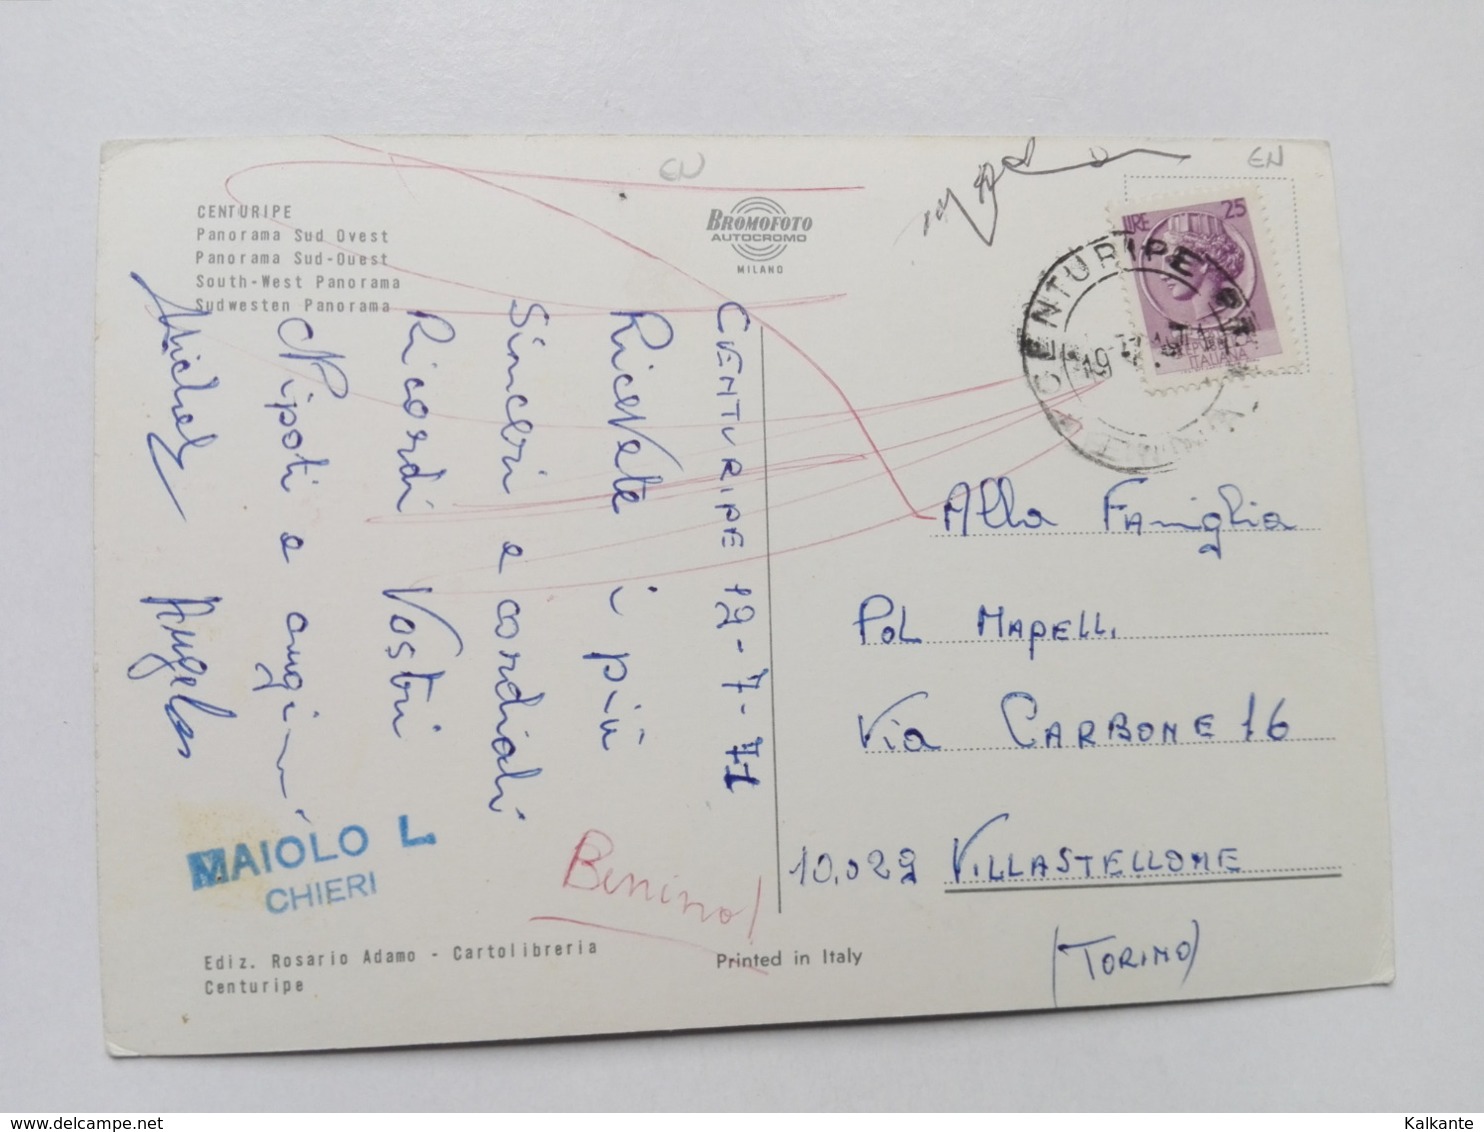 CENTURIPE
Panorama Sud Ovest
Panorama Sud-Ouest
South-West Panorama
Sudwesten Panorama
BROMOFOTO
AUTOCROMO
MILANO
EN
EN
LIRE 25
ITALIANA
CENTURIPE
CENTURIPE 12-7-71
Ricevete i più
Sinceri e cordiali
Ricordi Vostri
Nipoti e cugini
Michel Angelo
Alla Famiglia
Pol Mapelli
Via CARBONE 16
10.029 VILLASTELLONE
(TORINO)
MAIOLO L.
CHIERI
Ediz. Rosario Adamo - Cartolibreria
Centuripe
Printed in Italy
Kalkante